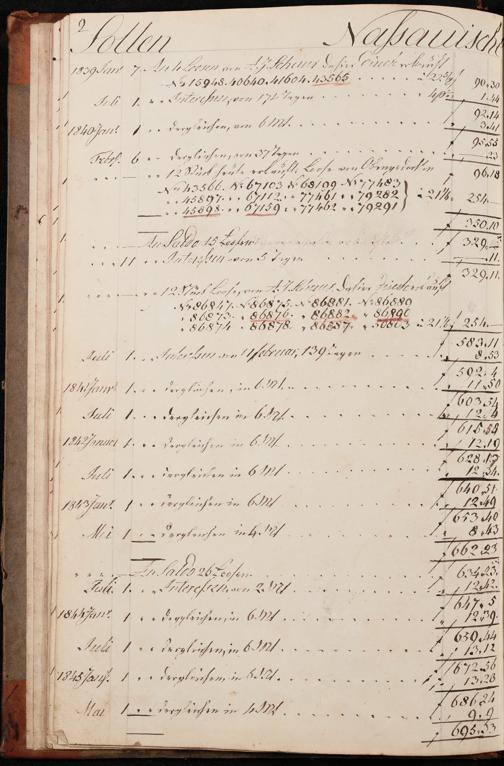 2
Sollen Nassauisch
1839 Janr 7 An 4 Loosen von
No 15948. 40640. 41604. 43565 90.30
Juli 1 Interessen, von 174 Tagen 1.44
92.14
1840 Janr. 1 dergleichen, von 6 Mt. 3.41
95.55
Febr. 6 dergleichen, von 37 Tagen 23
96.18
12 Stück heute erkaufte Loose von
No 43566. No 67103 No 68199 No 77483
45897 67112 77461 79282 21¼ 254
45898 67159 77462 79291
350.10
An Saldo 15 Loosen 329
11 Interessen von 5 Tagen .11.
329.11
12 Stück Loose, von
No 86847. No 86875. No 86881. No 86889
86873. 86876. 86882. 86890
86874 86878. 86887. 21¼ 254
583.11
Juli 1 Interessen von 11 Februar, 139 Tagen 8.53
592.4
1841 Janr. 1 dergleichen, in 6 Mt. 11.50
603.54
Juli 1 dergleichen in 6 Mt. 12.4
1842 Januar 1 dergleichen in 6 Mt. 12.19
628.17
Juli 1 dergleichen in 6 Mt. 12.34
640.51
1843 Janr. 1 dergleichen in 6 Mt 12.49
653.40
Mai 1 dergleichen in 4 Mt 8.43
662.23
An Saldo 26 Loosen 634.23
Juli 1 Interessen, von 2 Mt 12.42
647.5
1844 Janr. 1 dergleichen in 6 Mt. 12.39
659.44
Juli 1 dergleichen, in 6 Mt 13.12
672.56
1845 Janr. 1 dergleichen, in 6 Mt 13.28
686.24
Mai 1 dergleichen in 4 Mt 9.9
695.33